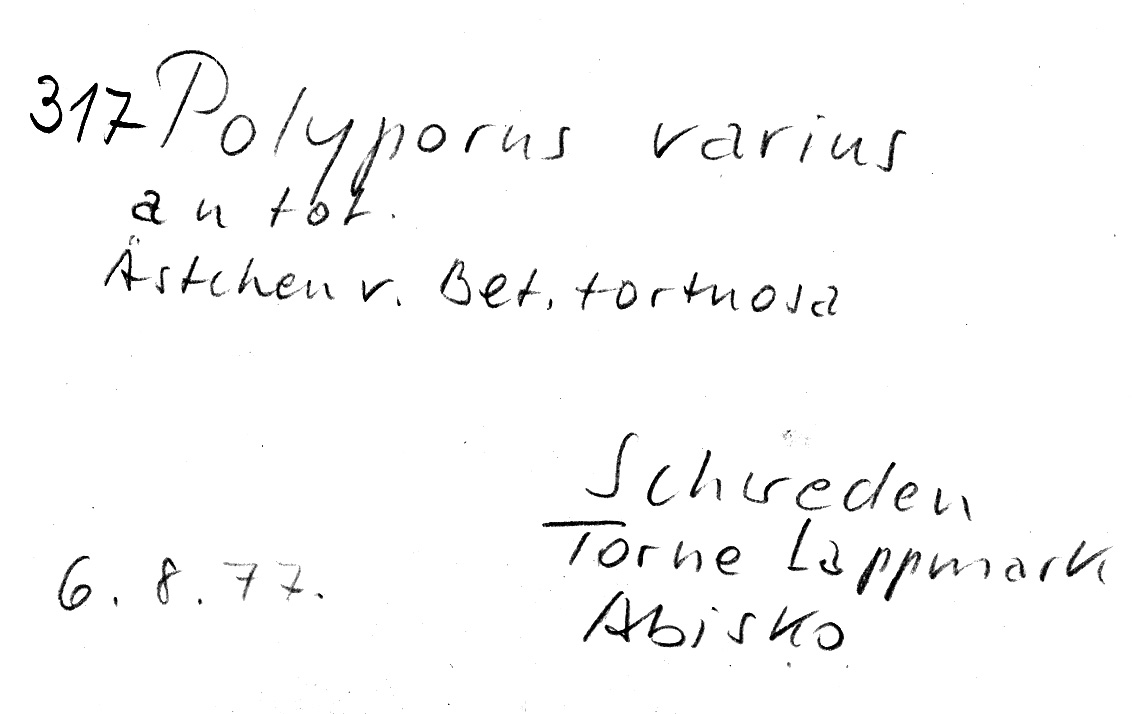 317 Polyporus varius
an tot.
Ästchen v. Bet. tortuosa
Schweden
Torne Lappmark
6.8.77.
Abisko